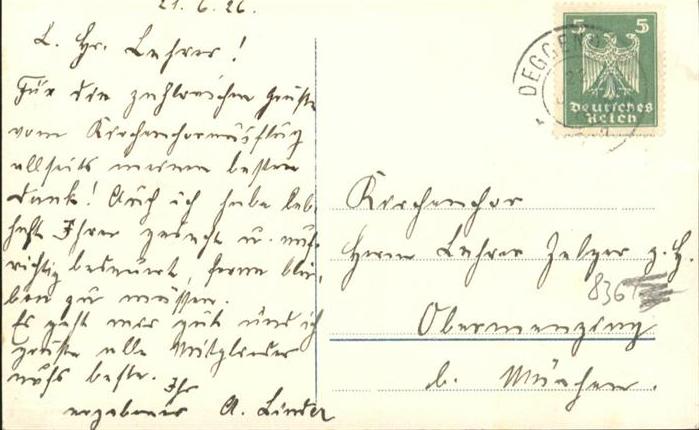 21. 6. 26.
L. Hr. Lehrer!
Für die zahlreichen Grüße
vom Kirchenchorausflug
allseits meinen besten
Dank! Auch ich habe leb-
haft Ihrer gedacht u. auf-
richtig bedauert, ferne blei-
ben zu müssen.
Es geht mir gut und ich
grüße alle Mitglieder
aufs beste.
Ihr
ergebener A. Linder
5 5
Deutsches
Reich
DEGGEN
Kirchenchor
Herrn Lehrer Zelger z. H.
8367
Obermenzing
b. München.